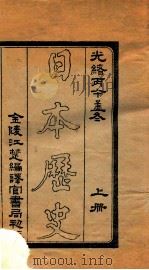 光緒丙午孟冬
上冊
日本歷史
金陵江楚編譯官書局